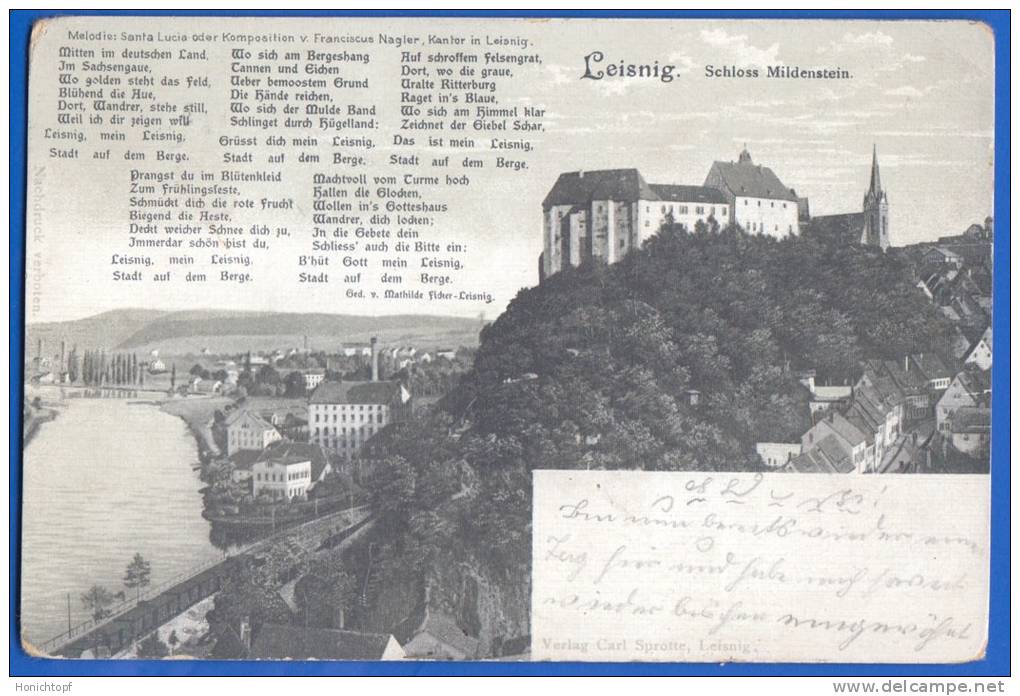 Melodie: Santa Lucia oder Komposition v. Franciscus Nagler, Kantor in Leisnig.
Mitten im deutschen Land,
Im Sachsengaue,
Wo golden steht das Feld,
Blühend die Aue,
Dort, Wandrer, stehe still,
Weil ich dir zeigen will
Leisnig, mein Leisnig,
Stadt auf dem Berge.
Wo sich am Bergeshang
Tannen und Eichen
Ueber bemoostem Grund
Die Hände reichen,
Wo sich der Mulde Band
Schlinget durch Hügelland:
Grüsst dich mein Leisnig,
Stadt auf dem Berge.
Auf schroffem Felsengrat,
Dort, wo die graue,
Uralte Ritterburg
Raget in's Blaue,
Wo sich am Himmel klar
Zeichnet der Giebel Schar,
Das ist mein Leisnig,
Stadt auf dem Berge.
Prangst du im Blütenkleid
Zum Frühlingsfeste,
Schmückt dich die rote Frucht
Biegend die Aeste,
Deckt weicher Schnee dich zu,
Immerdar schön bist du,
Leisnig, mein Leisnig,
Stadt auf dem Berge.
Machtvoll vom Turme hoch
Hallen die Glocken,
Wollen in's Gotteshaus
Wandrer, dich locken;
In die Gebete dein
Schliess' auch die Bitte ein:
B'hüt Gott mein Leisnig,
Stadt auf dem Berge.
Ged. v. Mathilde Ficker-Leisnig.
Leisnig. Schloss Mildenstein.
Nachdruck verboten.
Bin nun bereits wieder einen
Tag hier und habe mich soweit
wieder bisher eingewöhnt
Verlag Carl Sprotte, Leisnig.
Honichtopf
www.delcampe.net